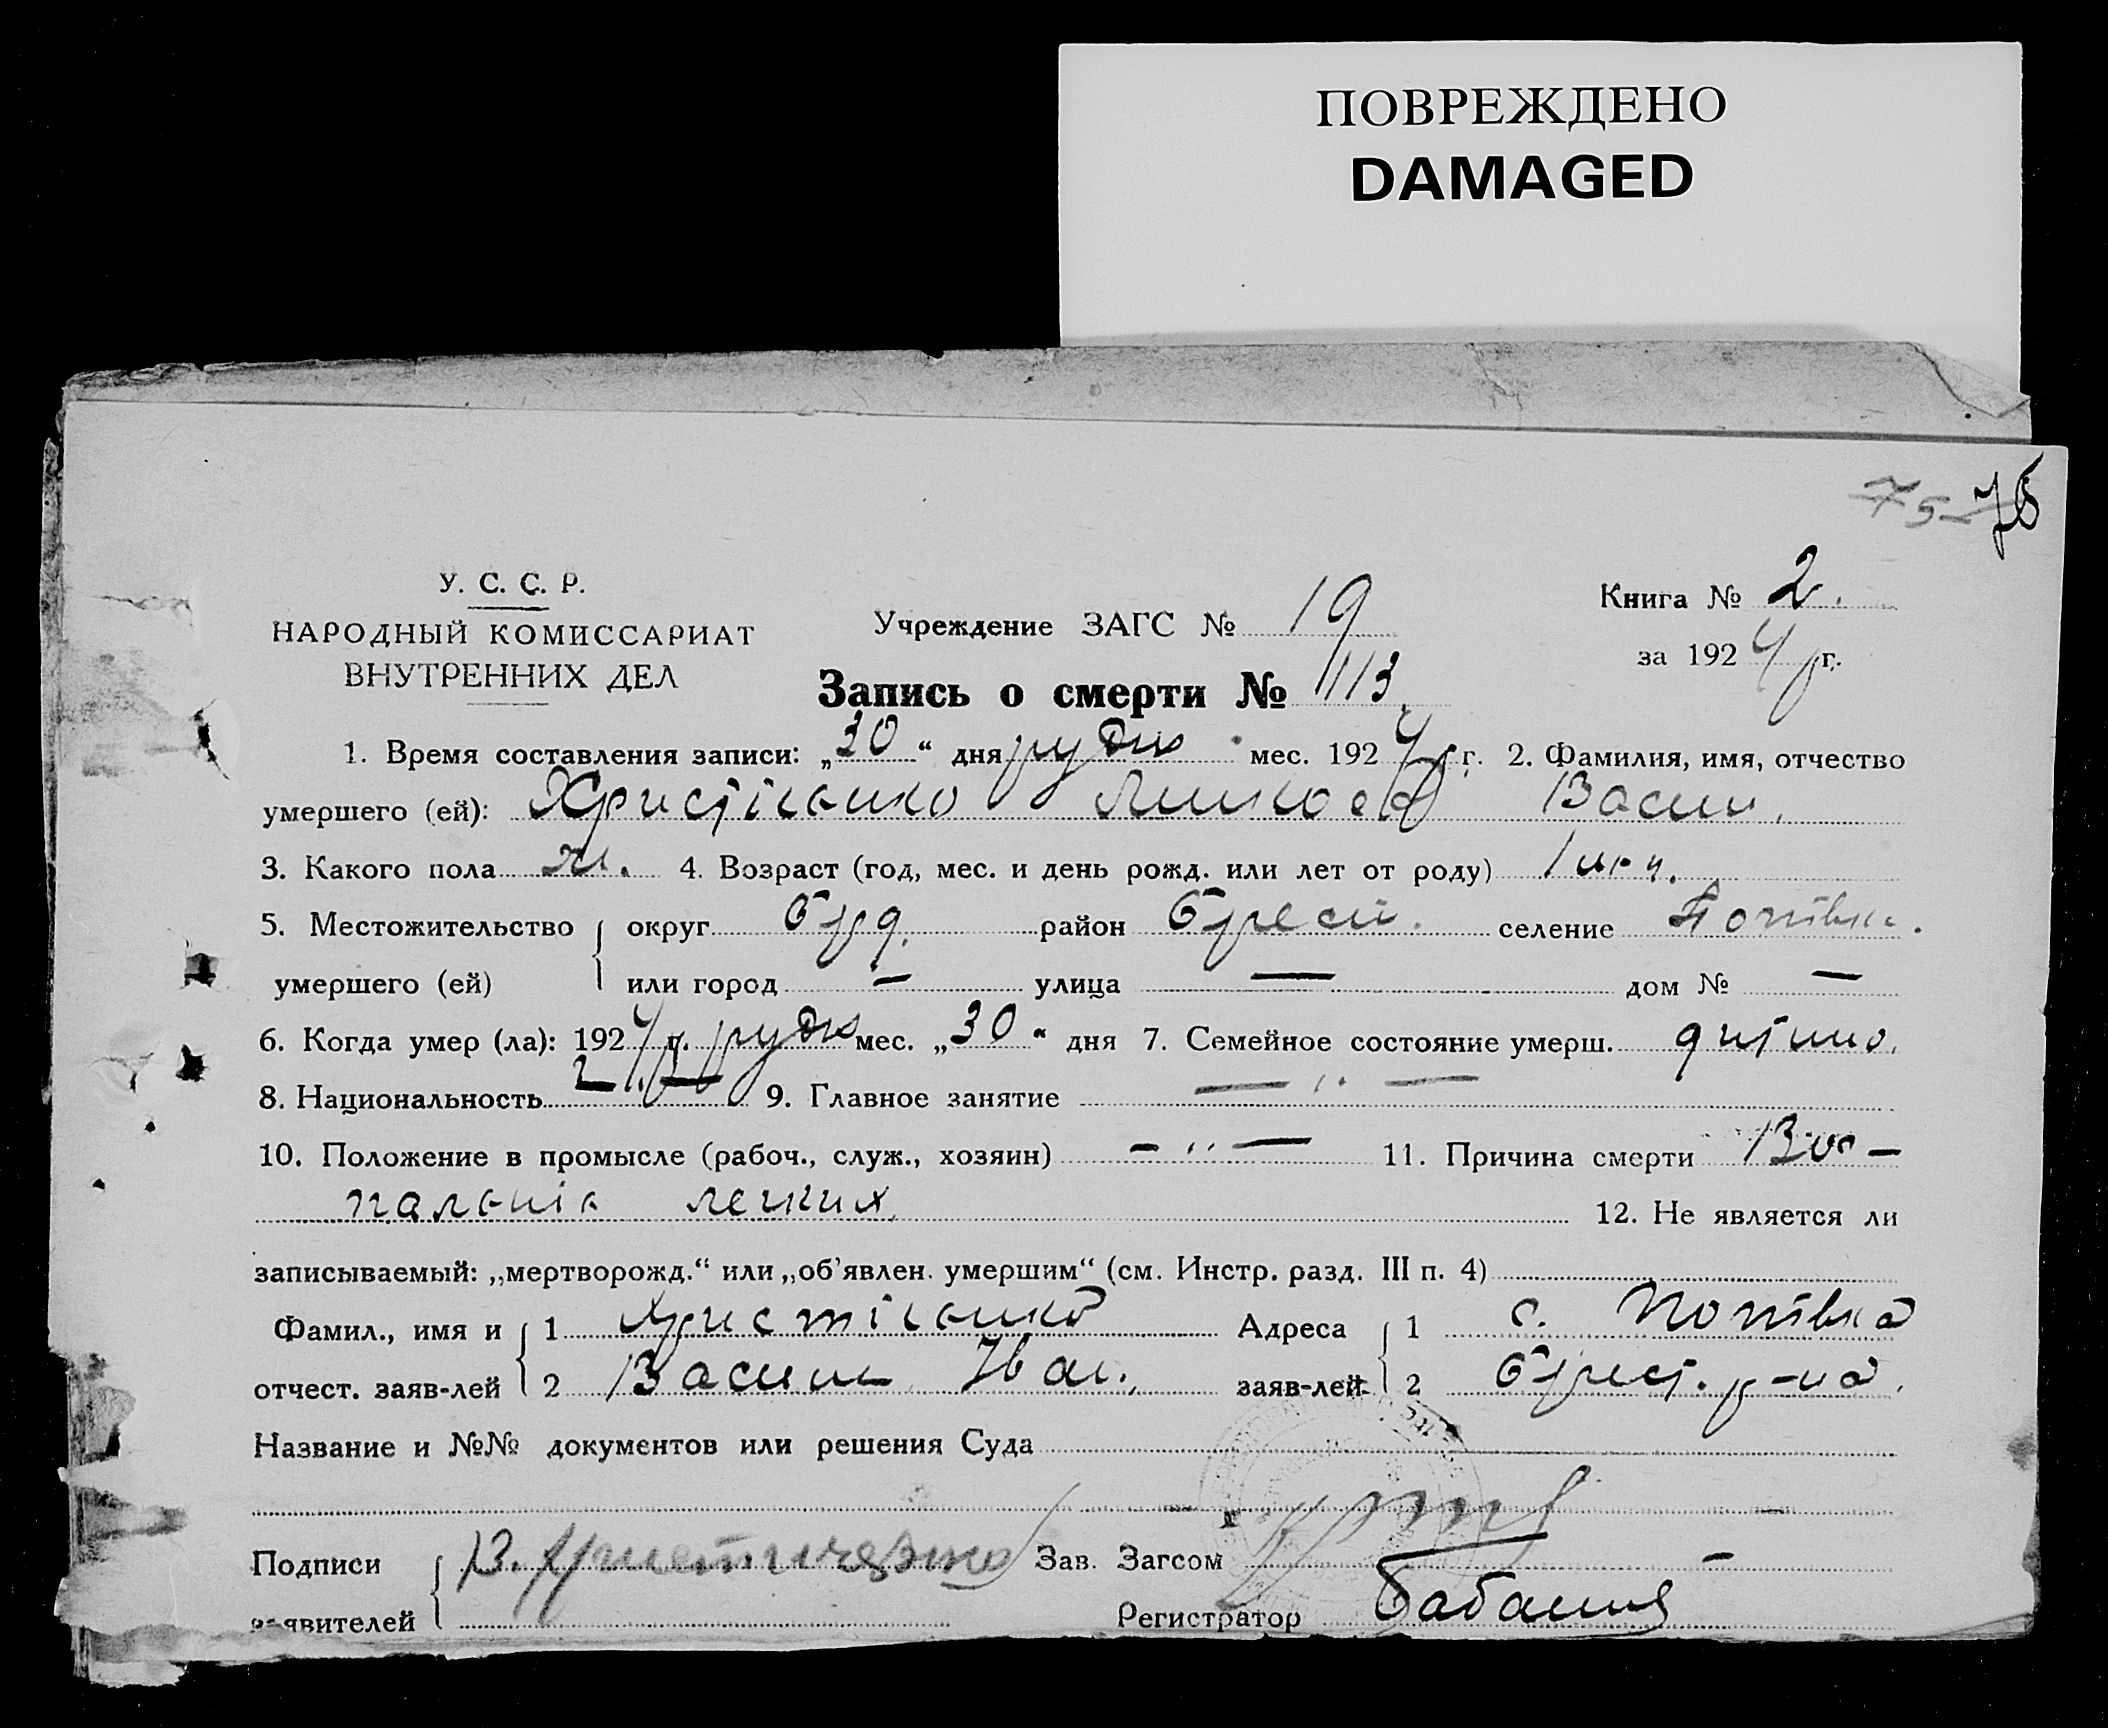 ПОВРЕЖДЕНО
DAMAGED
75 76
У. С. С. Р.
НАРОДНЫЙ КОМИССАРИАТ
ВНУТРЕННИХ ДЕЛ
Учреждение ЗАГС № 19
Книга № 2.
за 1924 р г.
Запись о смерти № 113
1. Время составления записи: „30“ дня грудня мес. 1924 р г. 2. Фамилия, имя, отчество
умершего (ей): Христіенко Микола Васил.
3. Какого пола м. 4. Возраст (год, мес. и день рожд. или лет от роду) 1
5. Местожительство округ район селение Попівка.
умершего (ей) или город — улица — дом № —
6. Когда умер (ла): 1924 р г. грудня мес. „30“ дня 7. Семейное состояние умерш. дитина.
8. Национальность 9. Главное занятие — „ —
10. Положение в промысле (рабоч., служ., хозяин) — „ — 11. Причина смерти Вос-
паленіе легких. 12. Не является ли
записываемый: „мертворожд.“ или „об'явлен. умершим“ (см. Инстр. разд. III п. 4)
Фамил., имя и 1 Христіенко Адреса 1 с. Попівка
отчест. заяв-лей 2 Васил Іван., заяв-лей 2 р-на.
Название и №№ документов или решения Суда
Подписи В. Зав. Загсом
заявителей Регистратор